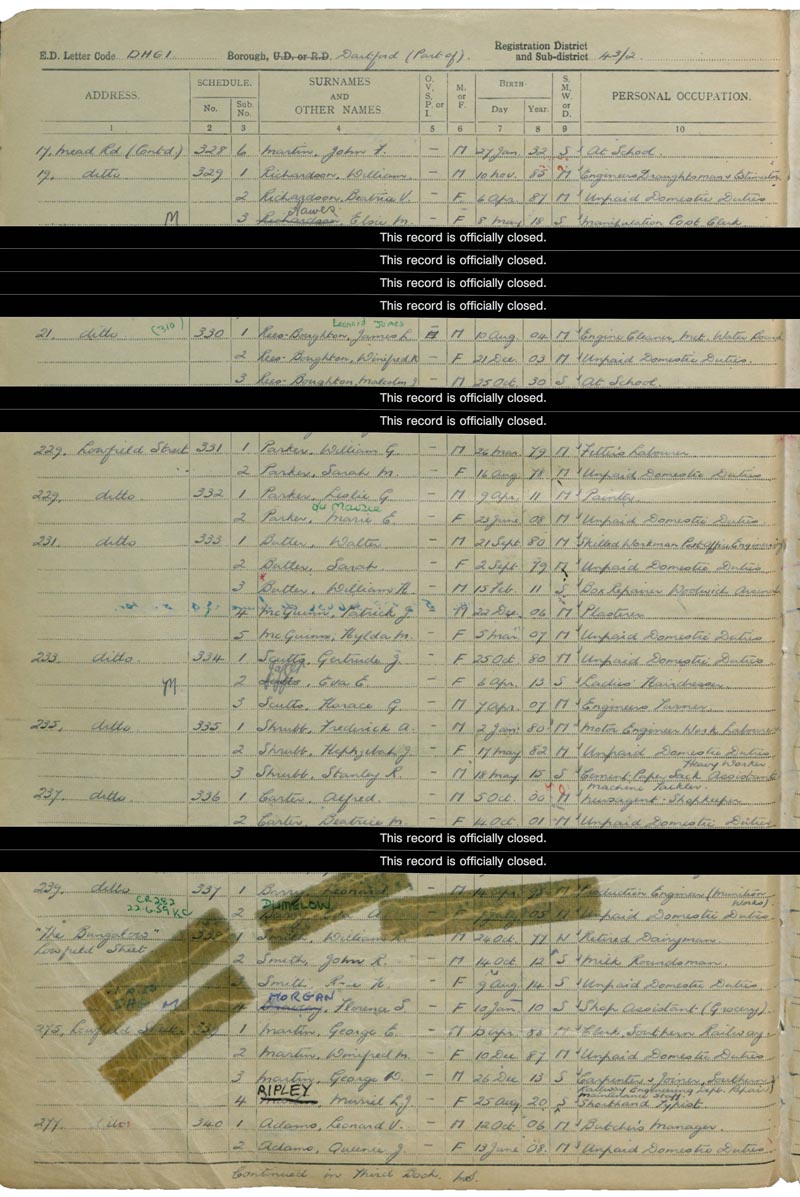 E.D. Letter Code DHG1 Borough, U.D. or R.D. Dartford (Part of). Registration District and Sub-district 43/2
ADDRESS. SCHEDULE. No. Sub. No. SURNAMES AND OTHER NAMES. O. V. S. P. or I. M. or F. BIRTH— Day Year. S. M. W. or D. PERSONAL OCCUPATION.
1 2 3 4 5 6 7 8 9 10
17, Mead Rd (Contd.) 328 6 Martin, John F. – M 27 Jan. 32 S At School.
19, ditto 329 1 Richardson, William. – M 10 Nov. 85 M Engineers Draughtsman & Estimator
2 Richardson, Beatrice V. – F 6 Apr. 87 M Unpaid Domestic Duties
Hawes
M 3 Richardson, Elsie M. – F 8 May 18 S Manipulation Cost Clerk
This record is officially closed.
This record is officially closed.
This record is officially closed.
This record is officially closed.
Leonard James
21, ditto (310) 330 1 Rees-Boughton, James L. M 10 Aug. 04 M Engine Cleaner, Met. Water Board
2 Rees-Boughton, Winifred – F 21 Dec. 03 M Unpaid Domestic Duties.
3 Rees-Boughton, Malcolm J – M 25 Oct. 30 S At School.
This record is officially closed.
This record is officially closed.
229, Lowfield Street 331 1 Parker, William G. – M 26 Mar. 79 M Fitter's Labourer
2 Parker, Sarah M. – F 16 Aug 78 M Unpaid Domestic Duties.
229, ditto 332 1 Parker, Leslie G. – M 9 Apr. 11 M Painter
2 Parker, Marie E. – F 23 June 08 M Unpaid Domestic Duties.
231, ditto 333 1 Butter, Walter – M 21 Sept 80 M Skilled Workman Post Office Engineering
2 Butter, Sarah – F 2 Sept 79 M Unpaid Domestic Duties
3 Butter, William H. – M 15 Feb. 11 S Box Repairer Woolwich Arsenal
4 McGuinn, Patrick J. M 22 Dec. 06 M Plasterer
5 McGuinn, Hylda M. – F 5 Mar 07 M Unpaid Domestic Duties
233, ditto 334 1 Scutts, Gertrude J. – F 25 Oct. 80 M Unpaid Domestic Duties.
M 2 Eva E. – F 6 Apr. 13 S Ladies' Hairdresser
3 Scutts, Horace G. – M 7 Apr. 07 M Engineers Turner.
235, ditto 335 1 Shrubb, Frederick A. – M 2 Jan. 80 M Motor Engineer Works Labourer
2 Shrubb, Hephzibah J. – F 17 May 82 M Unpaid Domestic Duties
Heavy Worker
3 Shrubb, Stanley R. – M 18 May 15 S Cement Paper Sack Assistant
Machine Tackler.
237, ditto 336 1 Carter, Alfred. – M 5 Oct. 00 M Newsagent - Shopkeeper
2 Carter, Beatrice M. – F 14 Oct. 01 M Unpaid Domestic Duties
This record is officially closed.
This record is officially closed.
239, ditto 337 1 Leonard M 14 Apr. Production Engineer (Munition Works).
CR283 DUMELOW
22.6.59 KC 2 F July 05 M Unpaid Domestic Duties.
"The Bungalow" 338 1 Smith, William – M 24 Oct. 77 W Retired Dairyman.
Lowfield Street
2 Smith, John R. – M 14 Oct. 12 S Milk Roundsman.
3 Smith, H. – F 9 Aug. 14 S Unpaid Domestic Duties.
MORGAN
M 4 Florence S. – F 10 Jan. 10 S Shop Assistant (Grocery)
275, Lowfield Street 339 1 Martin, George E. – M Apr. 86 M Clerk, Southern Railway.
2 Martin, Winifred M. – F 10 Dec 87 M Unpaid Domestic Duties.
3 Martin, George – M 26 Dec 13 S Carpenter & Joiner, Southern
Railway Engineering Dept. Repair
RIPLEY Maintenance Staff.
4 Martin, Murriel L.J. – F 25 Aug 20 S Shorthand Typist.
277, ditto 340 1 Adams, Leonard V. – M 12 Oct 06 M Butcher's Manager.
2 Adams, Queenie J. – F 13 June 08. M Unpaid Domestic Duties.
Continued in Third Book.